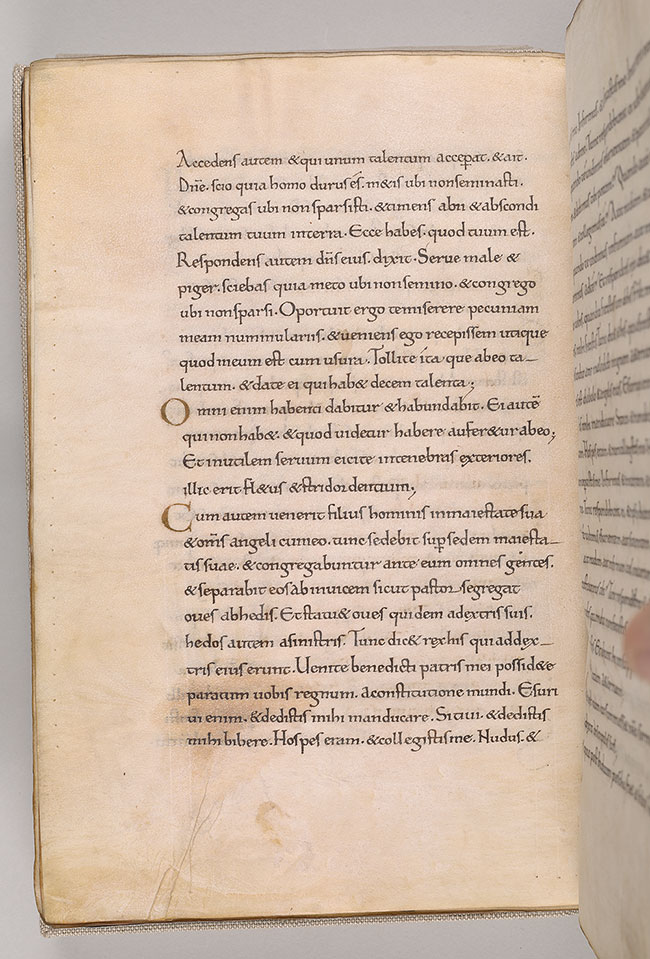 Accedens autem & qui unum talentum acceperat. & ait.
Dñe. scio quia homo durus és. m&is ubi non seminasti.
& congregas ubi non sparsisti. & timens abii & abscondi
talentum tuum in terra. Ecce habes. quod tuum est.
Respondens autem dñs eius. dixit. Serue male &
piger. sciebas quia meto ubi non semino. & congrego
ubi non sparsi. Oportuit ergo te mittere pecuniam
meam nummulariis. & ueniens ego recepissem utique
quod meum est cum usura. Tollite ita que ab eo ta_
lentum. & date ei qui hab& decem talenta;
Omni enim habenti dabitur & habundabit. Ei autē
qui non hab&. & quod uidetur habere aufer&ur ab eo;
Et inutilem seruum eicite in tenebras exteriores.
illic erit fl&us & stridor dentium;
Cum autem uenerit filius hominis in maiestate sua
& om̄s angeli cum eo. tunc sedebit sup sedem maiesta_
tis suae. & congregabuntur ante eum omnes gentes.
& separabit eos ab inuicem sicut pastor segregat
oues ab hedis. Et statu& oues quidem a dextris suis.
hedos autem a sinistris. Tunc dic& rex his qui ad dex_
tris eius erunt. Uenite benedicti patris mei possid&e
paratum uobis regnum. a constitutione mundi. Esuri
ui enim. & dedistis mihi manducare. Sitiui. & dedistis
mihi bibere. Hospes eram. & collegistis me. Nudus. &